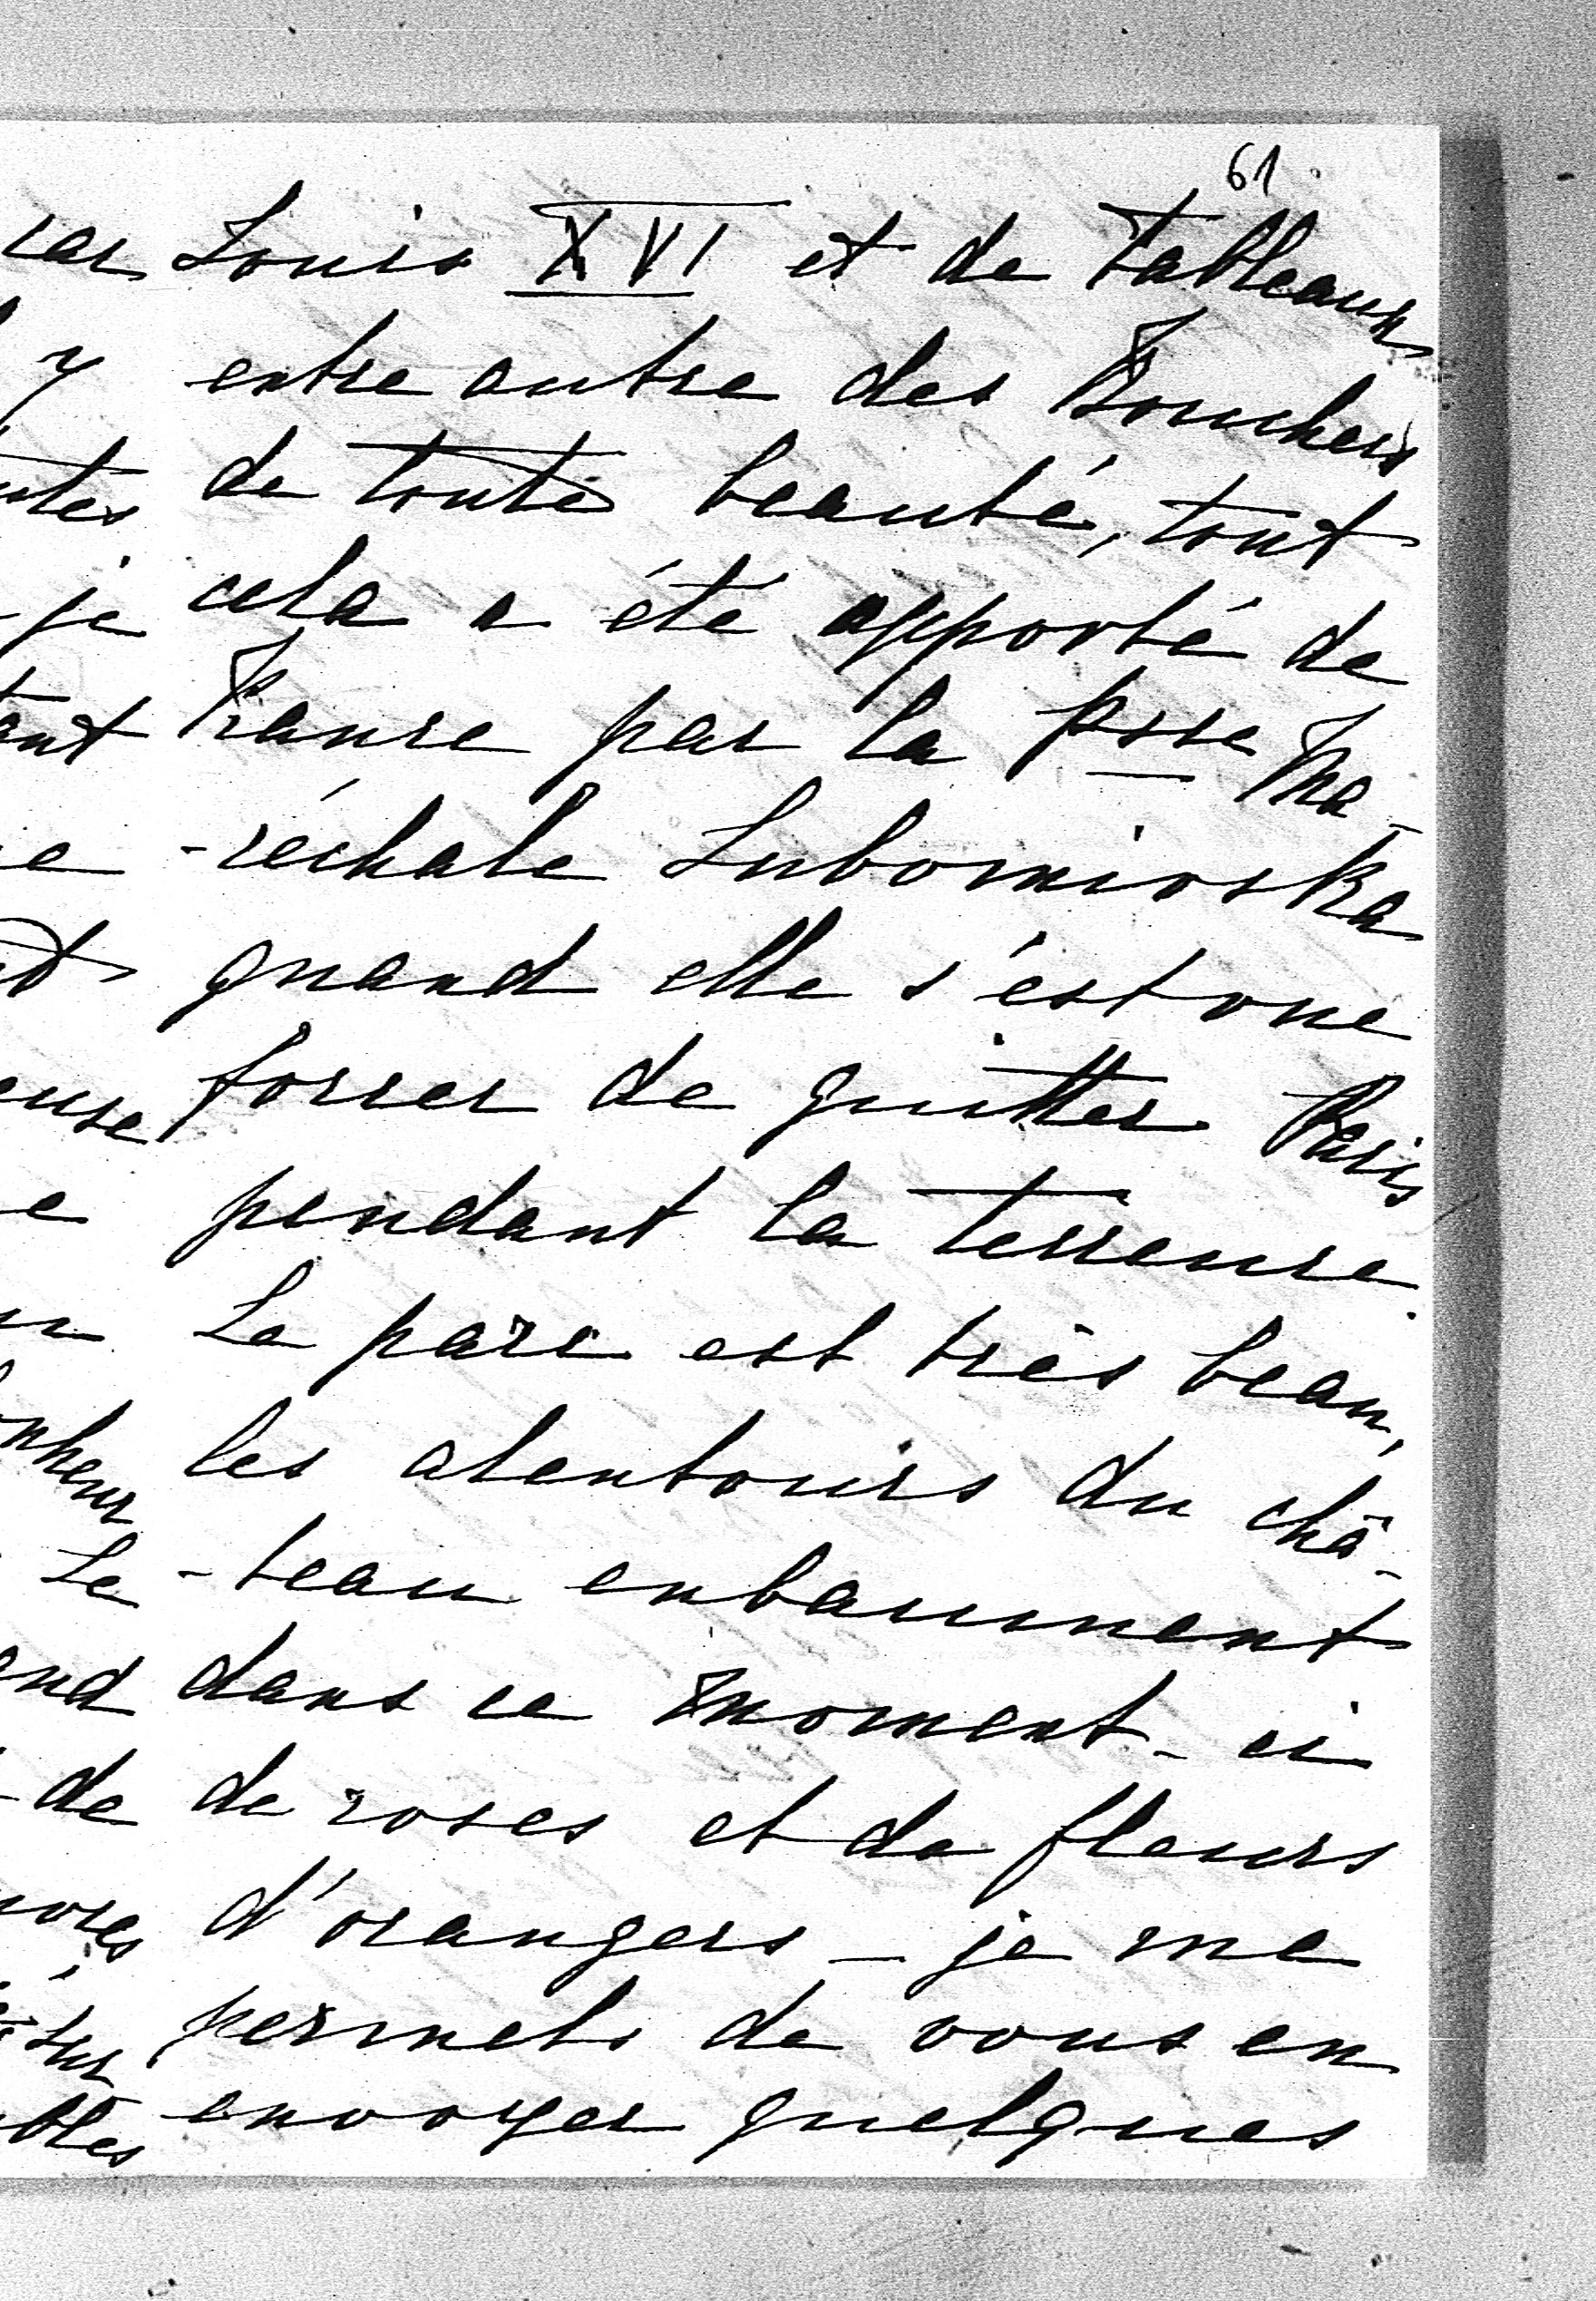 61
Louis XVI et de tableaux
entre autre des Bouchers
de toute beauté, tout
cela a été apporté de
France par la Psse Ma-
-réchale Lubomirska
quand elle s'est vue
forcer de quitter Paris
pendant la terreure.
Le parc est très beau,
les alentours du châ-
-teau enbaument
dans ce moment-ci
de roses et de fleurs
d'orangers - je me
permets de vous en
envoyer quelques